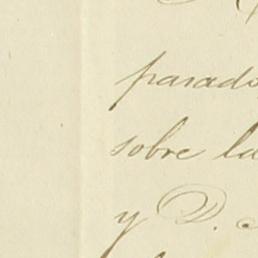 parado
sobre la
y D.